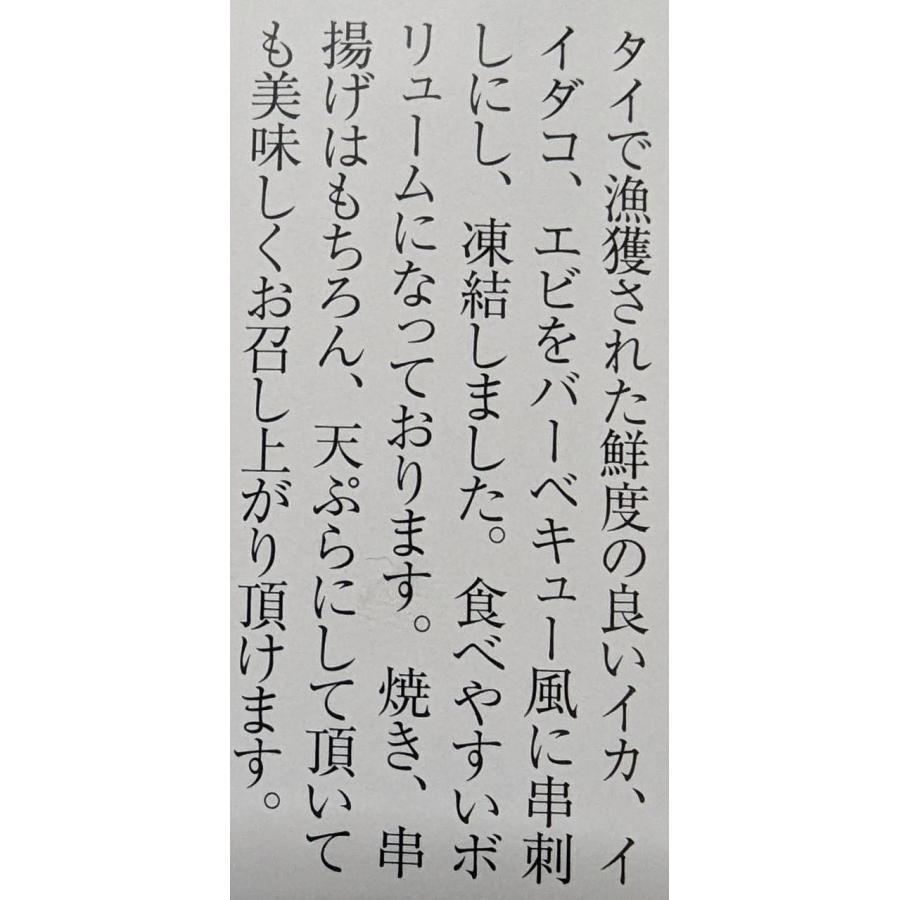 タイで漁獲された鮮度の良いイカ、イ
イダコ、エビをバーベキュー風に串刺
しにし、凍結しました。食べやすいボ
リュームになっております。焼き、串
揚げはもちろん、天ぷらにして頂いて
も美味しくお召し上がり頂けます。